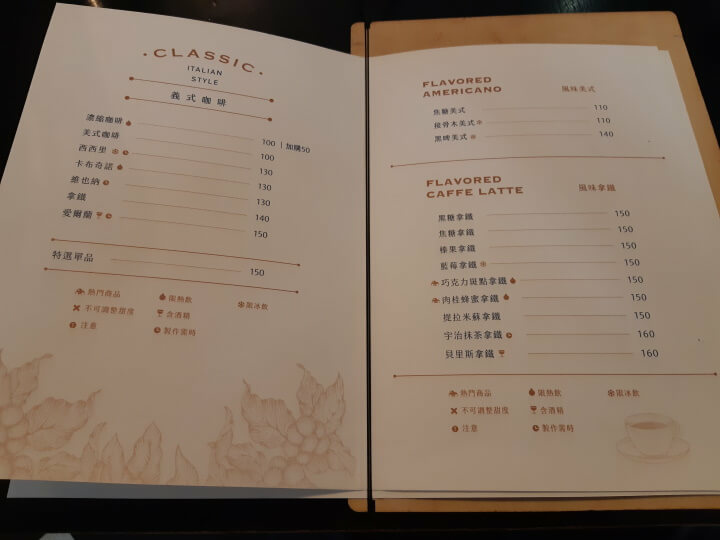 CLASSIC
ITALIAN
STYLE
義式咖啡
濃縮咖啡 100 | 加購50
美式咖啡 100
西西里 130
卡布奇諾 130
維也納 130
拿鐵 140
愛爾蘭 150
特選單品 150
熱門商品 限熱飲 限冰飲
不可調整甜度 含酒精
注意 製作需時
FLAVORED
AMERICANO 風味美式
焦糖美式 110
接骨木美式 110
黑啤美式 140
FLAVORED
CAFFE LATTE 風味拿鐵
黑糖拿鐵 150
焦糖拿鐵 150
榛果拿鐵 150
藍莓拿鐵 150
巧克力斑點拿鐵 150
肉桂蜂蜜拿鐵 150
提拉米蘇拿鐵 150
宇治抹茶拿鐵 160
貝里斯拿鐵 160
熱門商品 限熱飲 限冰飲
不可調整甜度 含酒精
注意 製作需時